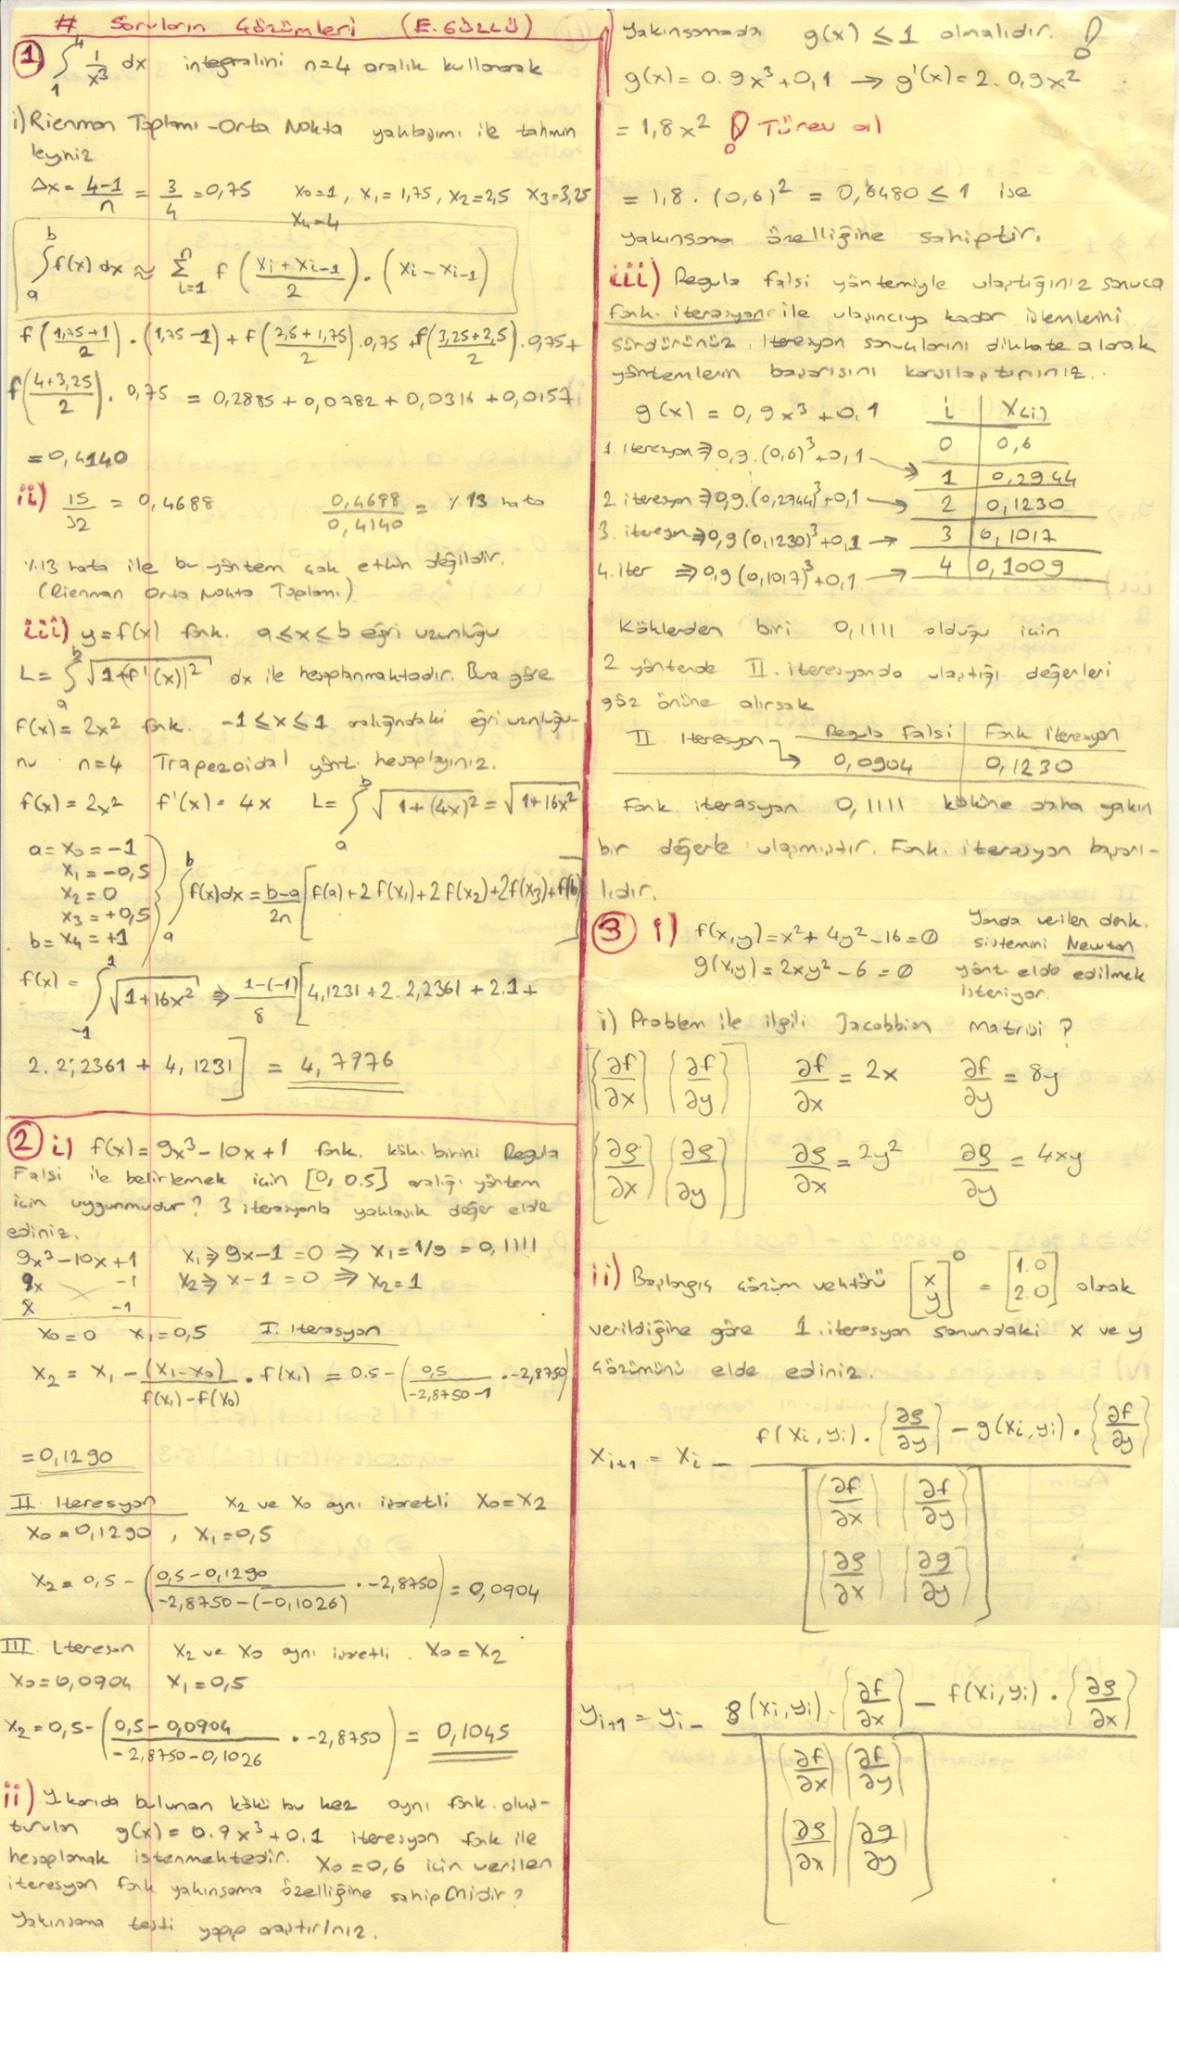 # Soruların Çözümleri (E. GÜZLÜ)
1) ∫₁⁴ 1/x³ dx integralini n=4 aralık kullanarak
i) Rienman Toplamı - Orta Nokta yaklaşımı ile tahmin
leyniz
Δx = (4-1)/n = 3/4 = 0,75 x₀=1, x₁=1,75, x₂=2,5 x₃=3,25
x₄=4
∫ₐᵇ f(x) dx ≈ Σᵢ₌₁ⁿ f((xᵢ+xᵢ₋₁)/2) . (xᵢ - xᵢ₋₁)
f((1,75+1)/2) . (1,75-1) + f((2,5+1,75)/2) . 0,75 + f((3,25+2,5)/2) . 0,75 +
f((4+3,25)/2) . 0,75 = 0,2885 + 0,0782 + 0,0316 + 0,0157
= 0,4140
ii) 15/32 = 0,4688 0,4688/0,4140 = %13 hata
%13 hata ile bu yöntem çok etkin değildir.
(Rienman Orta Nokta Toplamı)
iii) y=f(x) fonk. a≤x≤b eğri uzunluğu
L = ∫ₐᵇ √(1+(f'(x))²) dx ile hesaplanmaktadır. Buna göre
f(x) = 2x² fonk. -1≤x≤1 aralığındaki eğri uzunluğu-
nu n=4 Trapezoidal yönt. hesaplayınız.
f(x) = 2x² f'(x) = 4x L = ∫ₐᵇ √(1+(4x)²) = √(1+16x²)
a = x₀ = -1
x₁ = -0,5
x₂ = 0
x₃ = +0,5
b = x₄ = +1
∫ₐᵇ f(x)dx = (b-a)/2n [f(a) + 2f(x₁) + 2f(x₂) + 2f(x₃) + f(b)]
f(x) = ∫₋₁¹ √(1+16x²) ⇒ (1-(-1))/8 [4,1231 + 2.2,2361 + 2.1 +
2.2,2361 + 4,1231] = 4,7976
2) i) f(x) = 9x³ - 10x + 1 fonk. kök. birini Regula
Falsi ile belirlemek için [0, 0.5] aralığı yöntem
için uygunmudur? 3 iterasyonla yaklaşık değer elde
ediniz.
9x³ - 10x + 1 x₁ ⇒ 9x-1 = 0 ⇒ x₁ = 1/9 = 0,1111
9x -1 x₂ ⇒ x-1 = 0 ⇒ x₂ = 1
x -1
x₀=0 x₁=0,5 I. Iterasyon
x₂ = x₁ - (x₁-x₀)/(f(x₁)-f(x₀)) . f(x₁) = 0.5 - (0,5/(-2,8750-1) . -2,8750)
= 0,1290
II. Iterasyon x₂ ve x₀ aynı işaretli x₀=x₂
x₀ = 0,1290, x₁=0,5
x₂ = 0,5 - ((0,5-0,1290)/(-2,8750-(-0,1026)) . -2,8750) = 0,0904
III. Iterasyon x₂ ve x₀ aynı işaretli. x₀=x₂
x₀=0,0904 x₁=0,5
x₂ = 0,5 - ((0,5-0,0904)/(-2,8750-0,1026) . -2,8750) = 0,1045
ii) Yukarıda bulunan kökü bu kez aynı fonk. oluş-
turulan g(x) = 0.9x³ + 0.1 iterasyon fonk ile
hesaplamak istenmektedir. x₀=0,6 için verilen
iterasyon fonk yakınsama özelliğine sahip midir?
Yakınsama testi yapıp araştırınız.
Yakınsamada g(x) ≤ 1 olmalıdır. !
g(x) = 0.9x³ + 0,1 → g'(x) = 2. 0,9x²
= 1,8x² ! Türev al
= 1,8 . (0,6)² = 0,6480 ≤ 1 ise
yakınsama özelliğine sahiptir.
iii) Regula falsi yöntemiyle ulaştığınız sonuca
fonk. iterasyonu ile ulaşıncıya kadar işlemlerini
sürdürünüz. Iterasyon sonuçlarını dikkate alarak
yöntemlerin başarısını karşılaştırınız.
g(x) = 0,9x³ + 0.1 i | x(i)
0 | 0,6
1. Iterasyon ⇒ 0,9. (0,6)³ + 0,1 → 1 | 0,2944
2. iterasyon ⇒ 0,9. (0,2944)³ + 0,1 → 2 | 0,1230
3. iterasyon ⇒ 0,9 (0,1230)³ + 0,1 → 3 | 0,1017
4. Iter ⇒ 0,9 (0,1017)³ + 0,1 → 4 | 0,1009
Köklerden biri 0,1111 olduğu için
2 yöntemde II. iterasyonda ulaştığı değerleri
göz önüne alırsak
II. Iterasyon → Regula Falsi | Fonk iterasyon
0,0904 | 0,1230
Fonk. iterasyon 0,1111 köküne daha yakın
bir değerle ulaşmıştır. Fonk. iterasyon başarı-
lıdır.
3) i) f(x,y) = x² + 4y² - 16 = 0 Yanda verilen denk.
sistemini Newton
g(x,y) = 2xy² - 6 = 0 yönt elde edilmek
isteniyor.
i) Problem ile ilgili Jacobbian Matrisi ?
[(∂f/∂x) (∂f/∂y)] ∂f/∂x = 2x ∂f/∂y = 8y
[(∂g/∂x) (∂g/∂y)] ∂g/∂x = 2y² ∂g/∂y = 4xy
ii) Başlangıç çözüm vektörü [x y]⁰ = [1.0 2.0] olarak
verildiğine göre 1. iterasyon sonundaki x ve y
çözümünü elde ediniz.
xᵢ₊₁ = xᵢ - (f(xᵢ,yᵢ) . {∂g/∂y} - g(xᵢ,yᵢ) . {∂f/∂y}) / [(∂f/∂x) (∂f/∂y) (∂g/∂x) (∂g/∂y)]
yᵢ₊₁ = yᵢ - (g(xᵢ,yᵢ) . {∂f/∂x} - f(xᵢ,yᵢ) . {∂g/∂x}) / [(∂f/∂x) (∂f/∂y) (∂g/∂x) (∂g/∂y)]